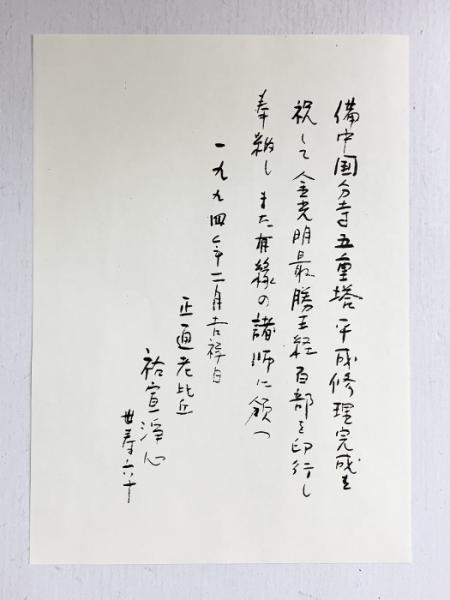 備中国分寺五重塔平成修理完成を
祝して金光明最勝王経百部を印行し
奉納しまた有縁の諸師に頒つ
一九九四年二月吉祥日
正通老比丘
祐宣浄心
世寿六十